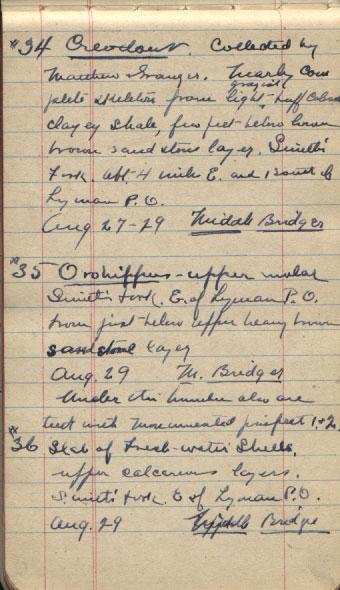 #34 Creodont. Collected by
Matthew Granger. Nearly Com
grayish
plete skeleton from light-buff colored
clayey shale, few feet below brown
brown sand stone layer. Smith's
Fork. abt. 4 mile E. and 1 south of
Lyman P.O.
Aug 27-29 Middle Bridger
#35 Orohippus - upper molar
Smith's Fork, E. of Lyman P.O.
from just below upper heavy brown
sandstone layer
Aug. 29 M. Bridger
Under this number also are
teeth with
#36 Slab of Fresh-water Shells,
upper calcareous layers.
Smith's Fork. E of Lyman P.O.
Aug. 29 Middle Bridge